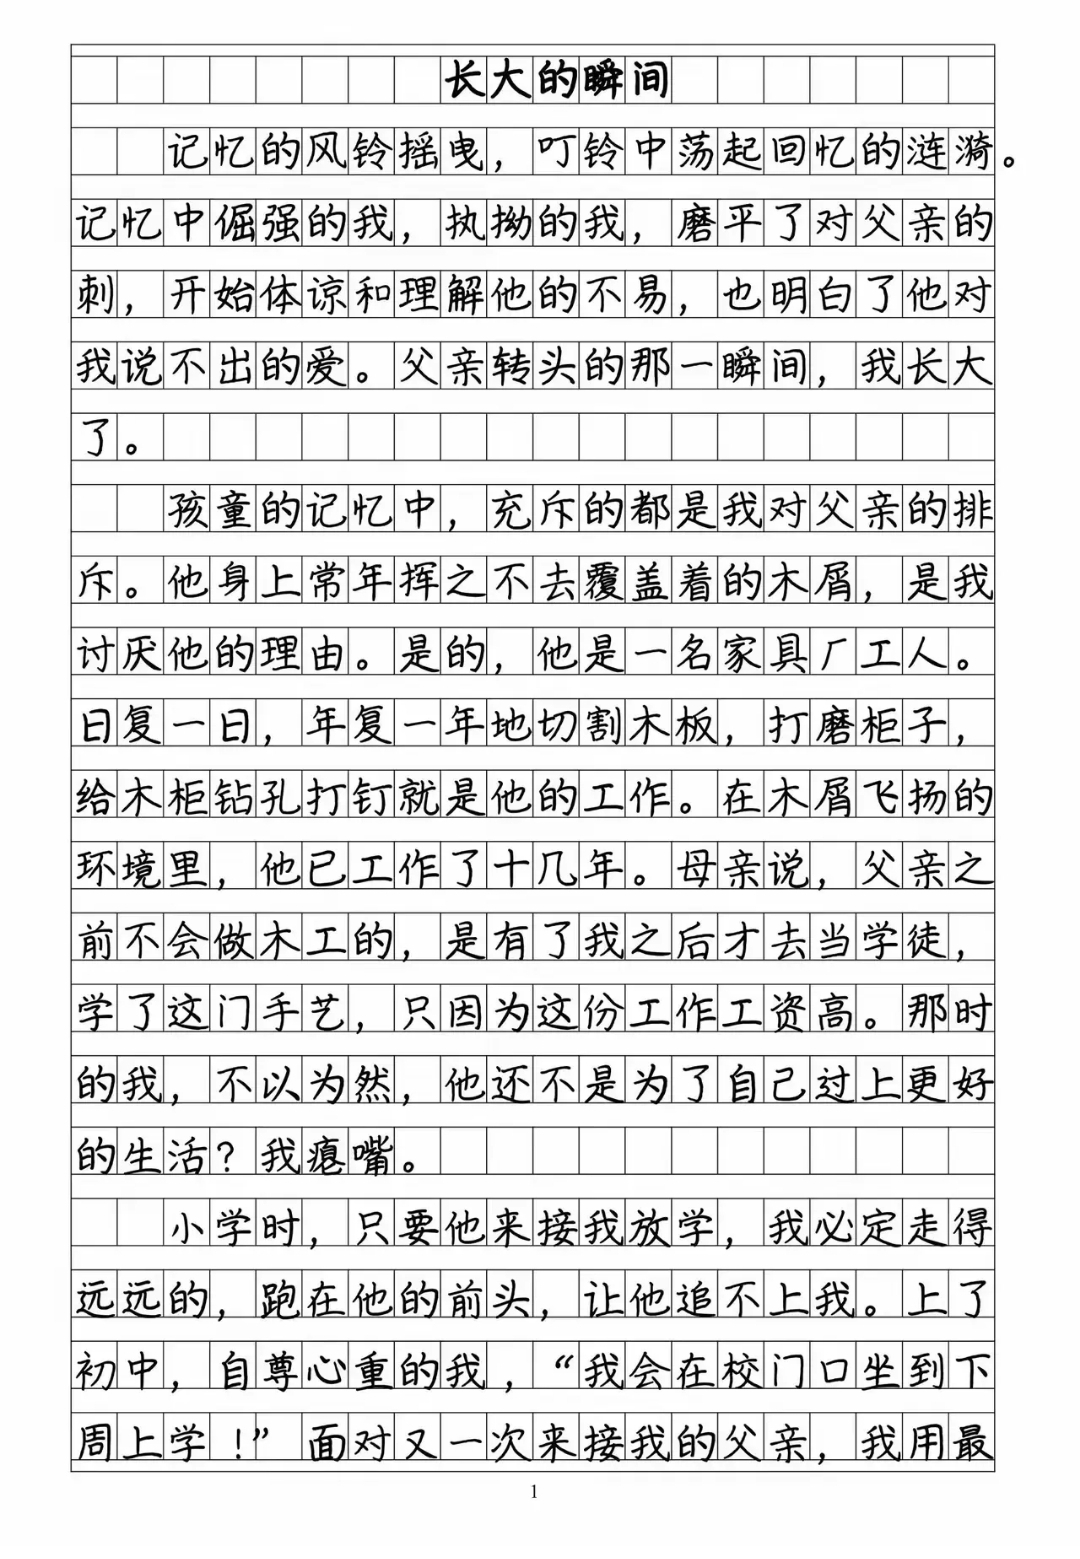 长大的瞬间
记忆的风铃摇曳，叮铃中荡起回忆的涟漪。
记忆中倔强的我，执拗的我，磨平了对父亲的
刺，开始体谅和理解他的不易，也明白了他对
我说不出的爱。父亲转头的那一瞬间，我长大
了。
孩童的记忆中，充斥的都是我对父亲的排
斥。他身上常年挥之不去覆盖着的木屑，是我
讨厌他的理由。是的，他是一名家具厂工人。
日复一日，年复一年地切割木板，打磨柜子，
给木柜钻孔打钉就是他的工作。在木屑飞扬的
环境里，他已工作了十几年。母亲说，父亲之
前不会做木工的，是有了我之后才去当学徒，
学了这门手艺，只因为这份工作工资高。那时
的我，不以为然，他还不是为了自己过上更好
的生活？我瘪嘴。
小学时，只要他来接我放学，我必定走得
远远的，跑在他的前头，让他追不上我。上了
初中，自尊心重的我，“我会在校门口坐到下
周上学！”面对又一次来接我的父亲，我用最
1